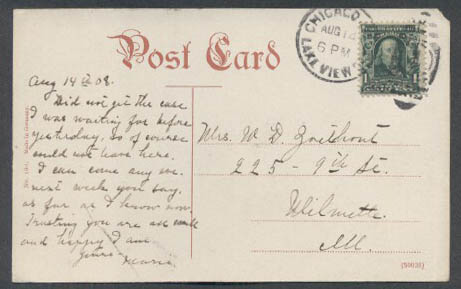 Post Card
CHICAGO
AUG 14
6 PM
LAKE VIEW
Aug 14th 08.
Did not get the case
I was waiting for before
yesterday, so of course
could not leave here.
I can come any
next week you say.
as far as I know now
Trusting you are all well
and happy I am
Yours
Marie
Mrs. W D
225 - 9th St.
Wilmette
Ill.
Made in Germany.
(50035)